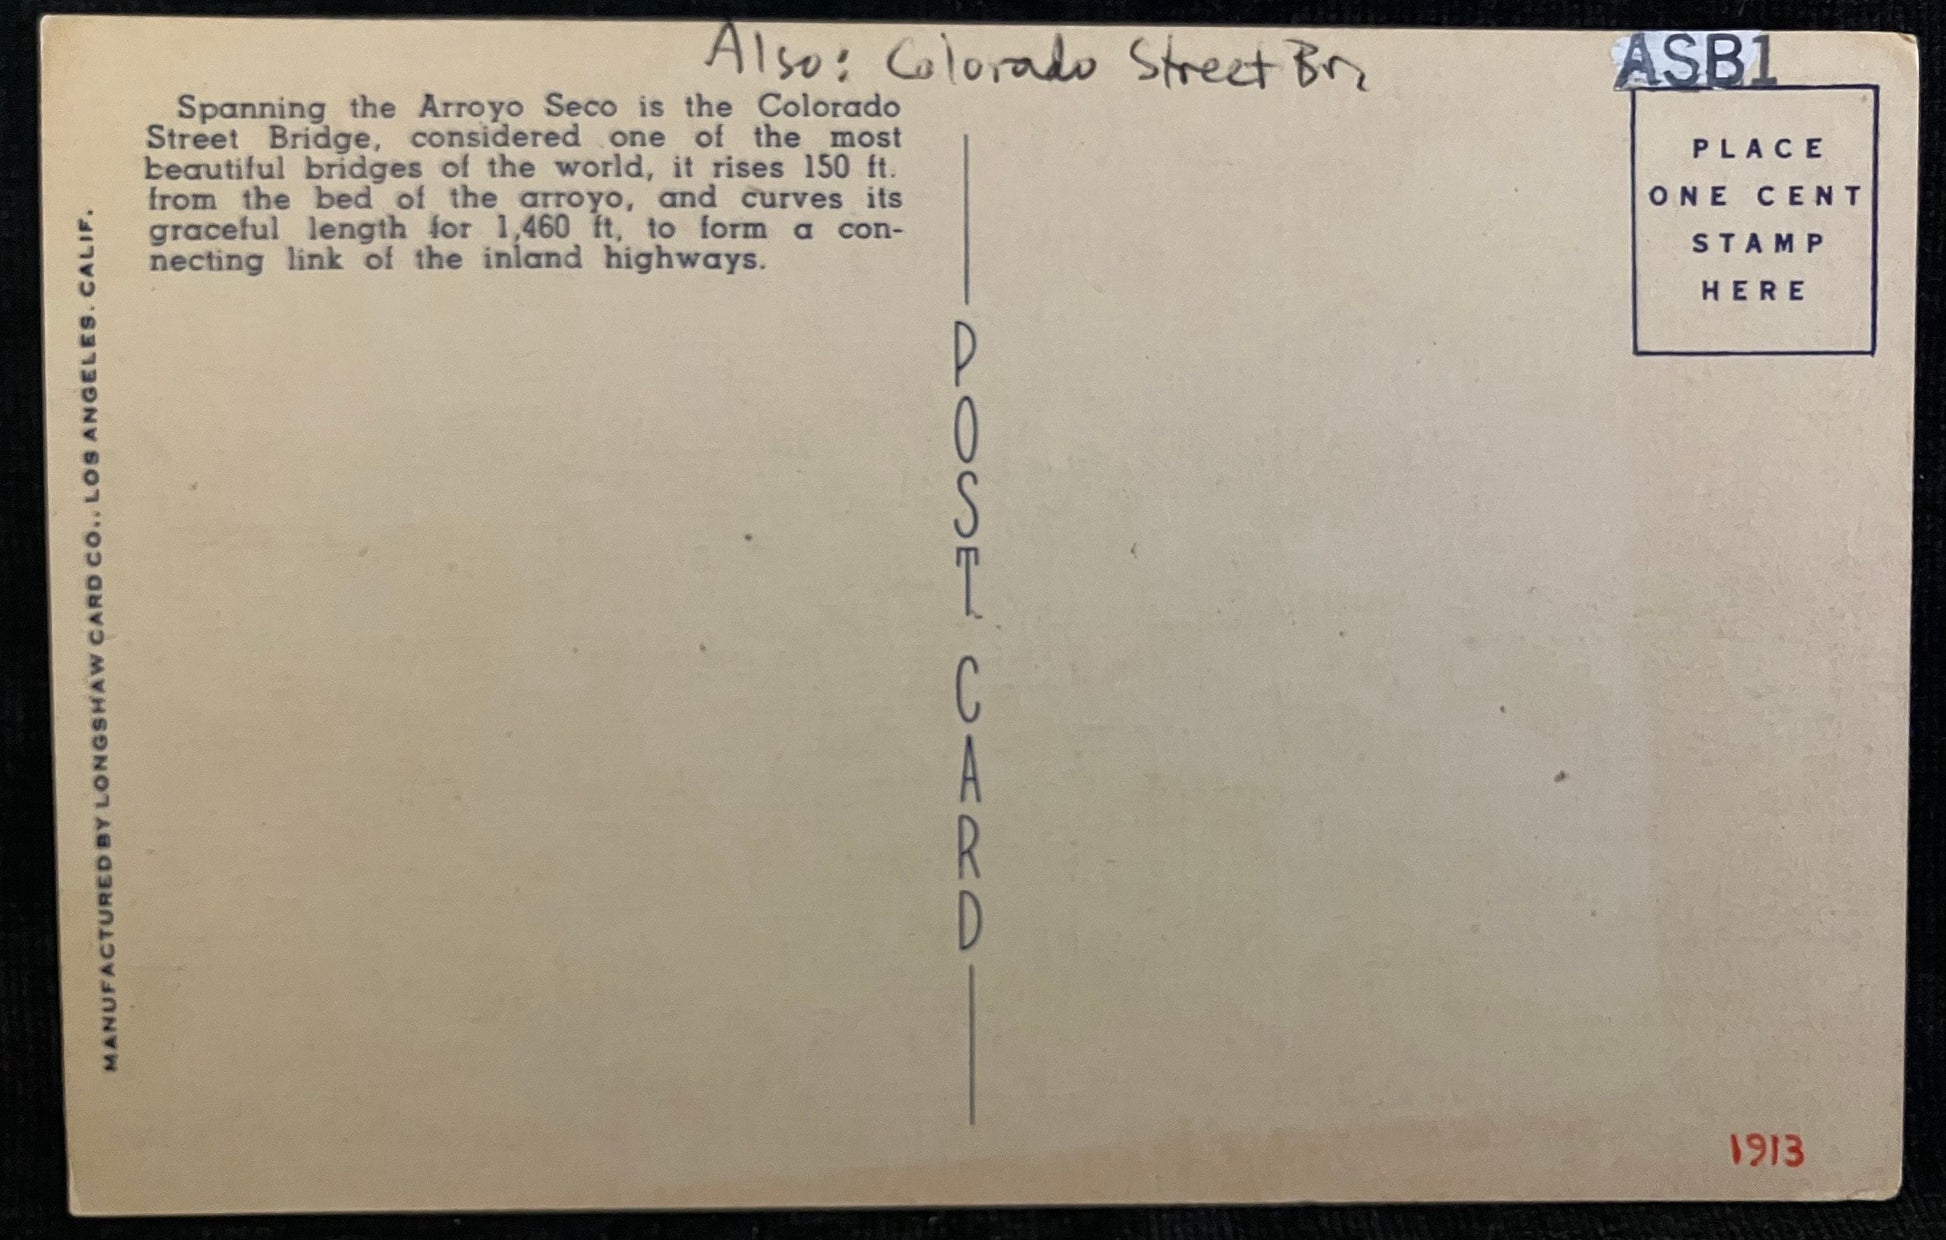 Also: Colorado Street Br.
ASB1
Spanning the Arroyo Seco is the Colorado
Street Bridge, considered one of the most
beautiful bridges of the world, it rises 150 ft.
from the bed of the arroyo, and curves its
graceful length for 1,460 ft, to form a con-
necting link of the inland highways.
MANUFACTURED BY LONGSHAW CARD CO., LOS ANGELES. CALIF.
POST CARD
PLACE
ONE CENT
STAMP
HERE
1913